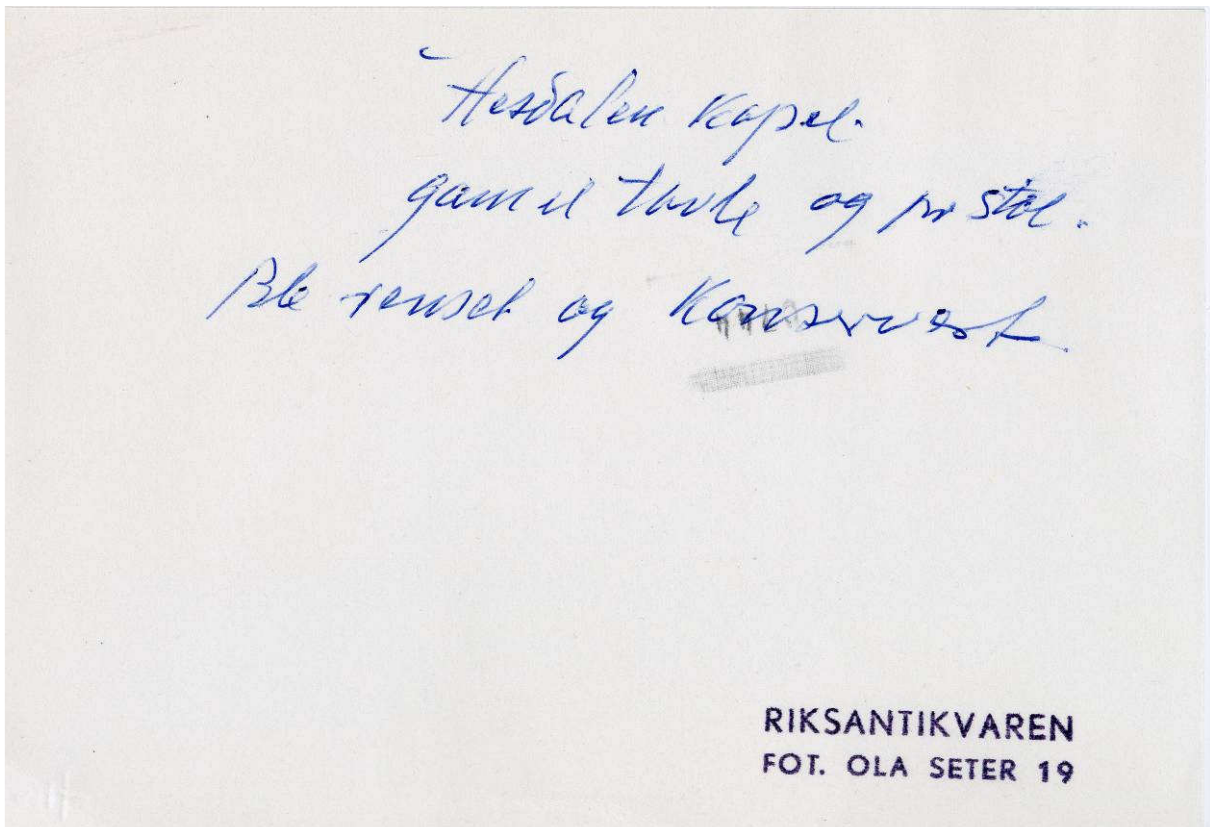 Hesdalen Kapel.
gamel tavle og pr stol.
Ble renset og Konservert.
RIKSANTIKVAREN
FOT. OLA SETER 19